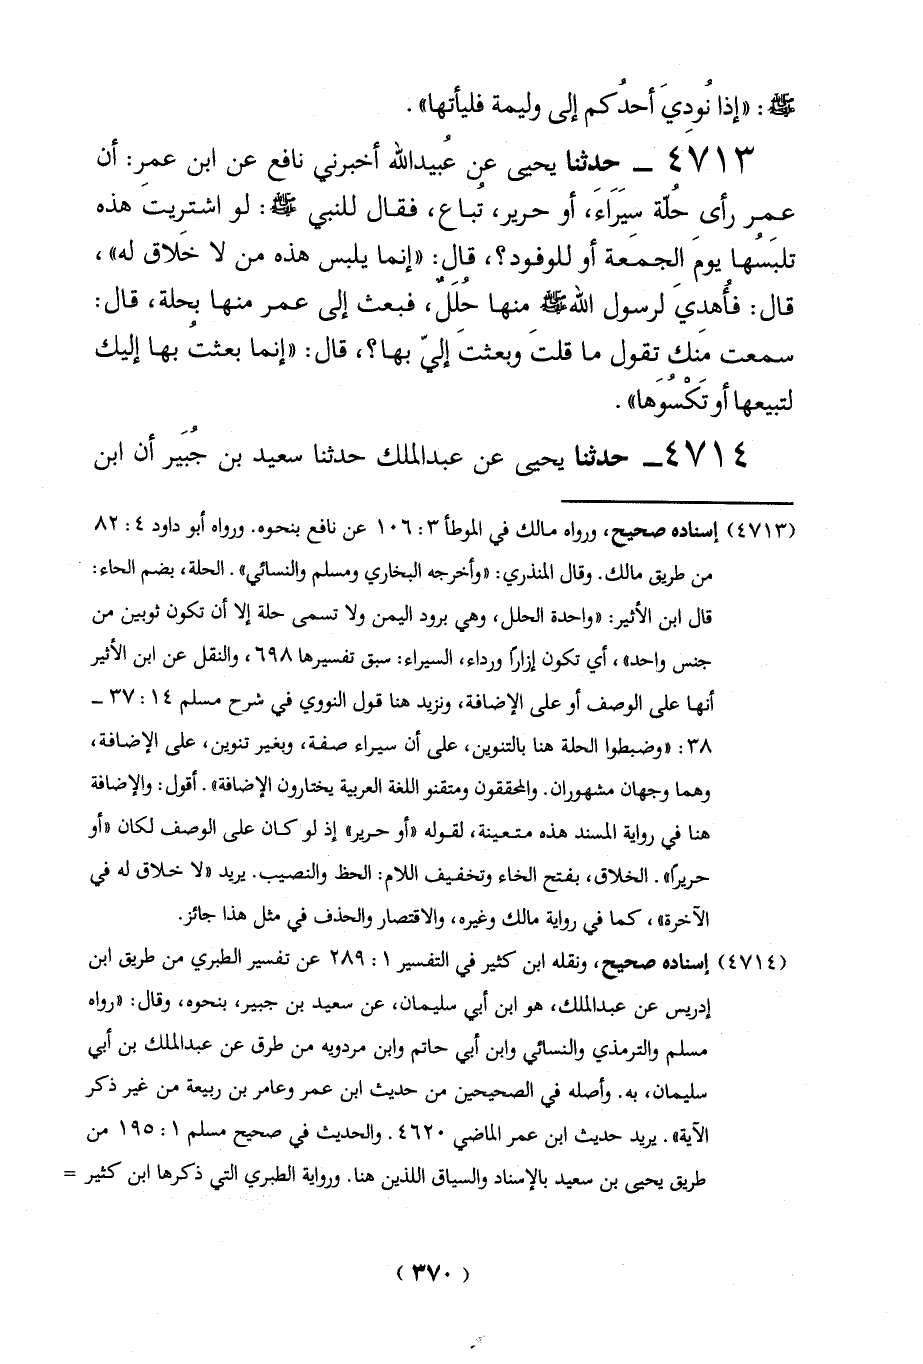 ﷺ: «إذا نُودِيَ أحدُكم إلى وليمة فليأتها».
٤٧١٣ ـ حدثنا يحيى عن عُبيدالله أخبرني نافع عن ابن عمر: أن
عمر رأى حُلّة سِيَرَاءَ، أو حرير، تُباع، فقال للنبي ﷺ: لو اشتريت هذه
تلبَسُها يومَ الجمعة أو للوفود؟، قال: «إنما يلبس هذه من لا خلاق له»،
قال: فأُهدِيَ لرسول اللهﷺ منها حُلَلٌ، فبعث إلى عمر منها بحلة، قال:
سمعت منك تقول ما قلتَ وبعثتَ إليّ بها؟، قال: «إنما بعثتُ بها إليك
لتبيعها أو تَكْسُوَها».
٤٧١٤ـ حدثنا يحيى عن عبدالملك حدثنا سعيد بن جُبَير أن ابن
(٤٧١٣) إسناده صحيح، ورواه مالك في الموطأ ٣: ١٠٦ عن نافع بنحوه. ورواه أبو داود ٤: ٨٢
من طريق مالك. وقال المنذري: «وأخرجه البخاري ومسلم والنسائي». الحلة، بضم الحاء:
قال ابن الأثير: «واحدة الحلل، وهي برود اليمن ولا تسمى حلة إلا أن تكون ثوبين من
جنس واحد»، أي تكون إزاراً ورداء، السيراء: سبق تفسيرها ٦٩٨، والنقل عن ابن الأثير
أنها على الوصف أو على الإضافة، ونزيد هنا قول النووي في شرح مسلم ١٤: ٣٧ ـ
٣٨: «وضبطوا الحلة هنا بالتنوين، على أن سيراء صفة، وبغير تنوين، على الإضافة،
وهما وجهان مشهوران. والمحققون ومتقنو اللغة العربية يختارون الإضافة». أقول: والإضافة
هنا في رواية المسند هذه متعينة، لقوله «أو حرير» إذ لو كان على الوصف لكان «أو
حريراً». الخلاق، بفتح الخاء وتخفيف اللام: الحظ والنصيب. يريد «لا خلاق له في
الآخرة»، كما في رواية مالك وغيره، والاقتصار والحذف في مثل هذا جائز.
(٤٧١٤) إسناده صحيح، ونقله ابن كثير في التفسير ١: ٢٨٩ عن تفسير الطبري من طريق ابن
إدريس عن عبدالملك، هو ابن أبي سليمان، عن سعيد بن جبير، بنحوه، وقال: «رواه
مسلم والترمذي والنسائي وابن أبي حاتم وابن مردويه من طرق عن عبدالملك بن أبي
سليمان، به. وأصله في الصحيحين من حديث ابن عمر وعامر بن ربيعة من غير ذكر
الآية». يريد حديث ابن عمر الماضي ٤٦٢٠. والحديث في صحيح مسلم ١: ١٩٥ من
طريق يحيى بن سعيد بالإسناد والسياق اللذين هنا. ورواية الطبري التي ذكرها ابن كثير =
(٣٧٠)